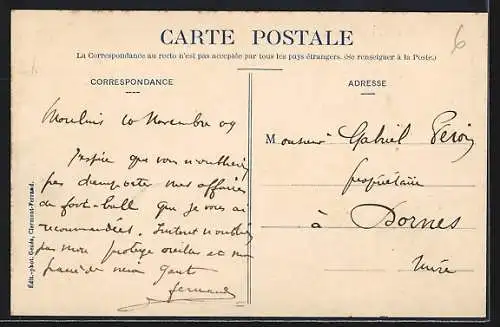 6
CARTE POSTALE
La Correspondance au recto n'est pas acceptée par tous les pays étrangers. (Se renseigner à la Poste.)
CORRESPONDANCE
Moulins 10 Novembre 09
J'espère que vous n'oublierez
pas d'emporter mes affaires
de foot-ball que je vous ai
recommandées. Surtout n'oubliez
pas mon protège oreilles et ma
paire de gants
Fernand
Édit.-phot. Goude, Clermont-Ferrand.
ADRESSE
Monsieur Gabriel
propriétaire
à Dornes
Nièvre